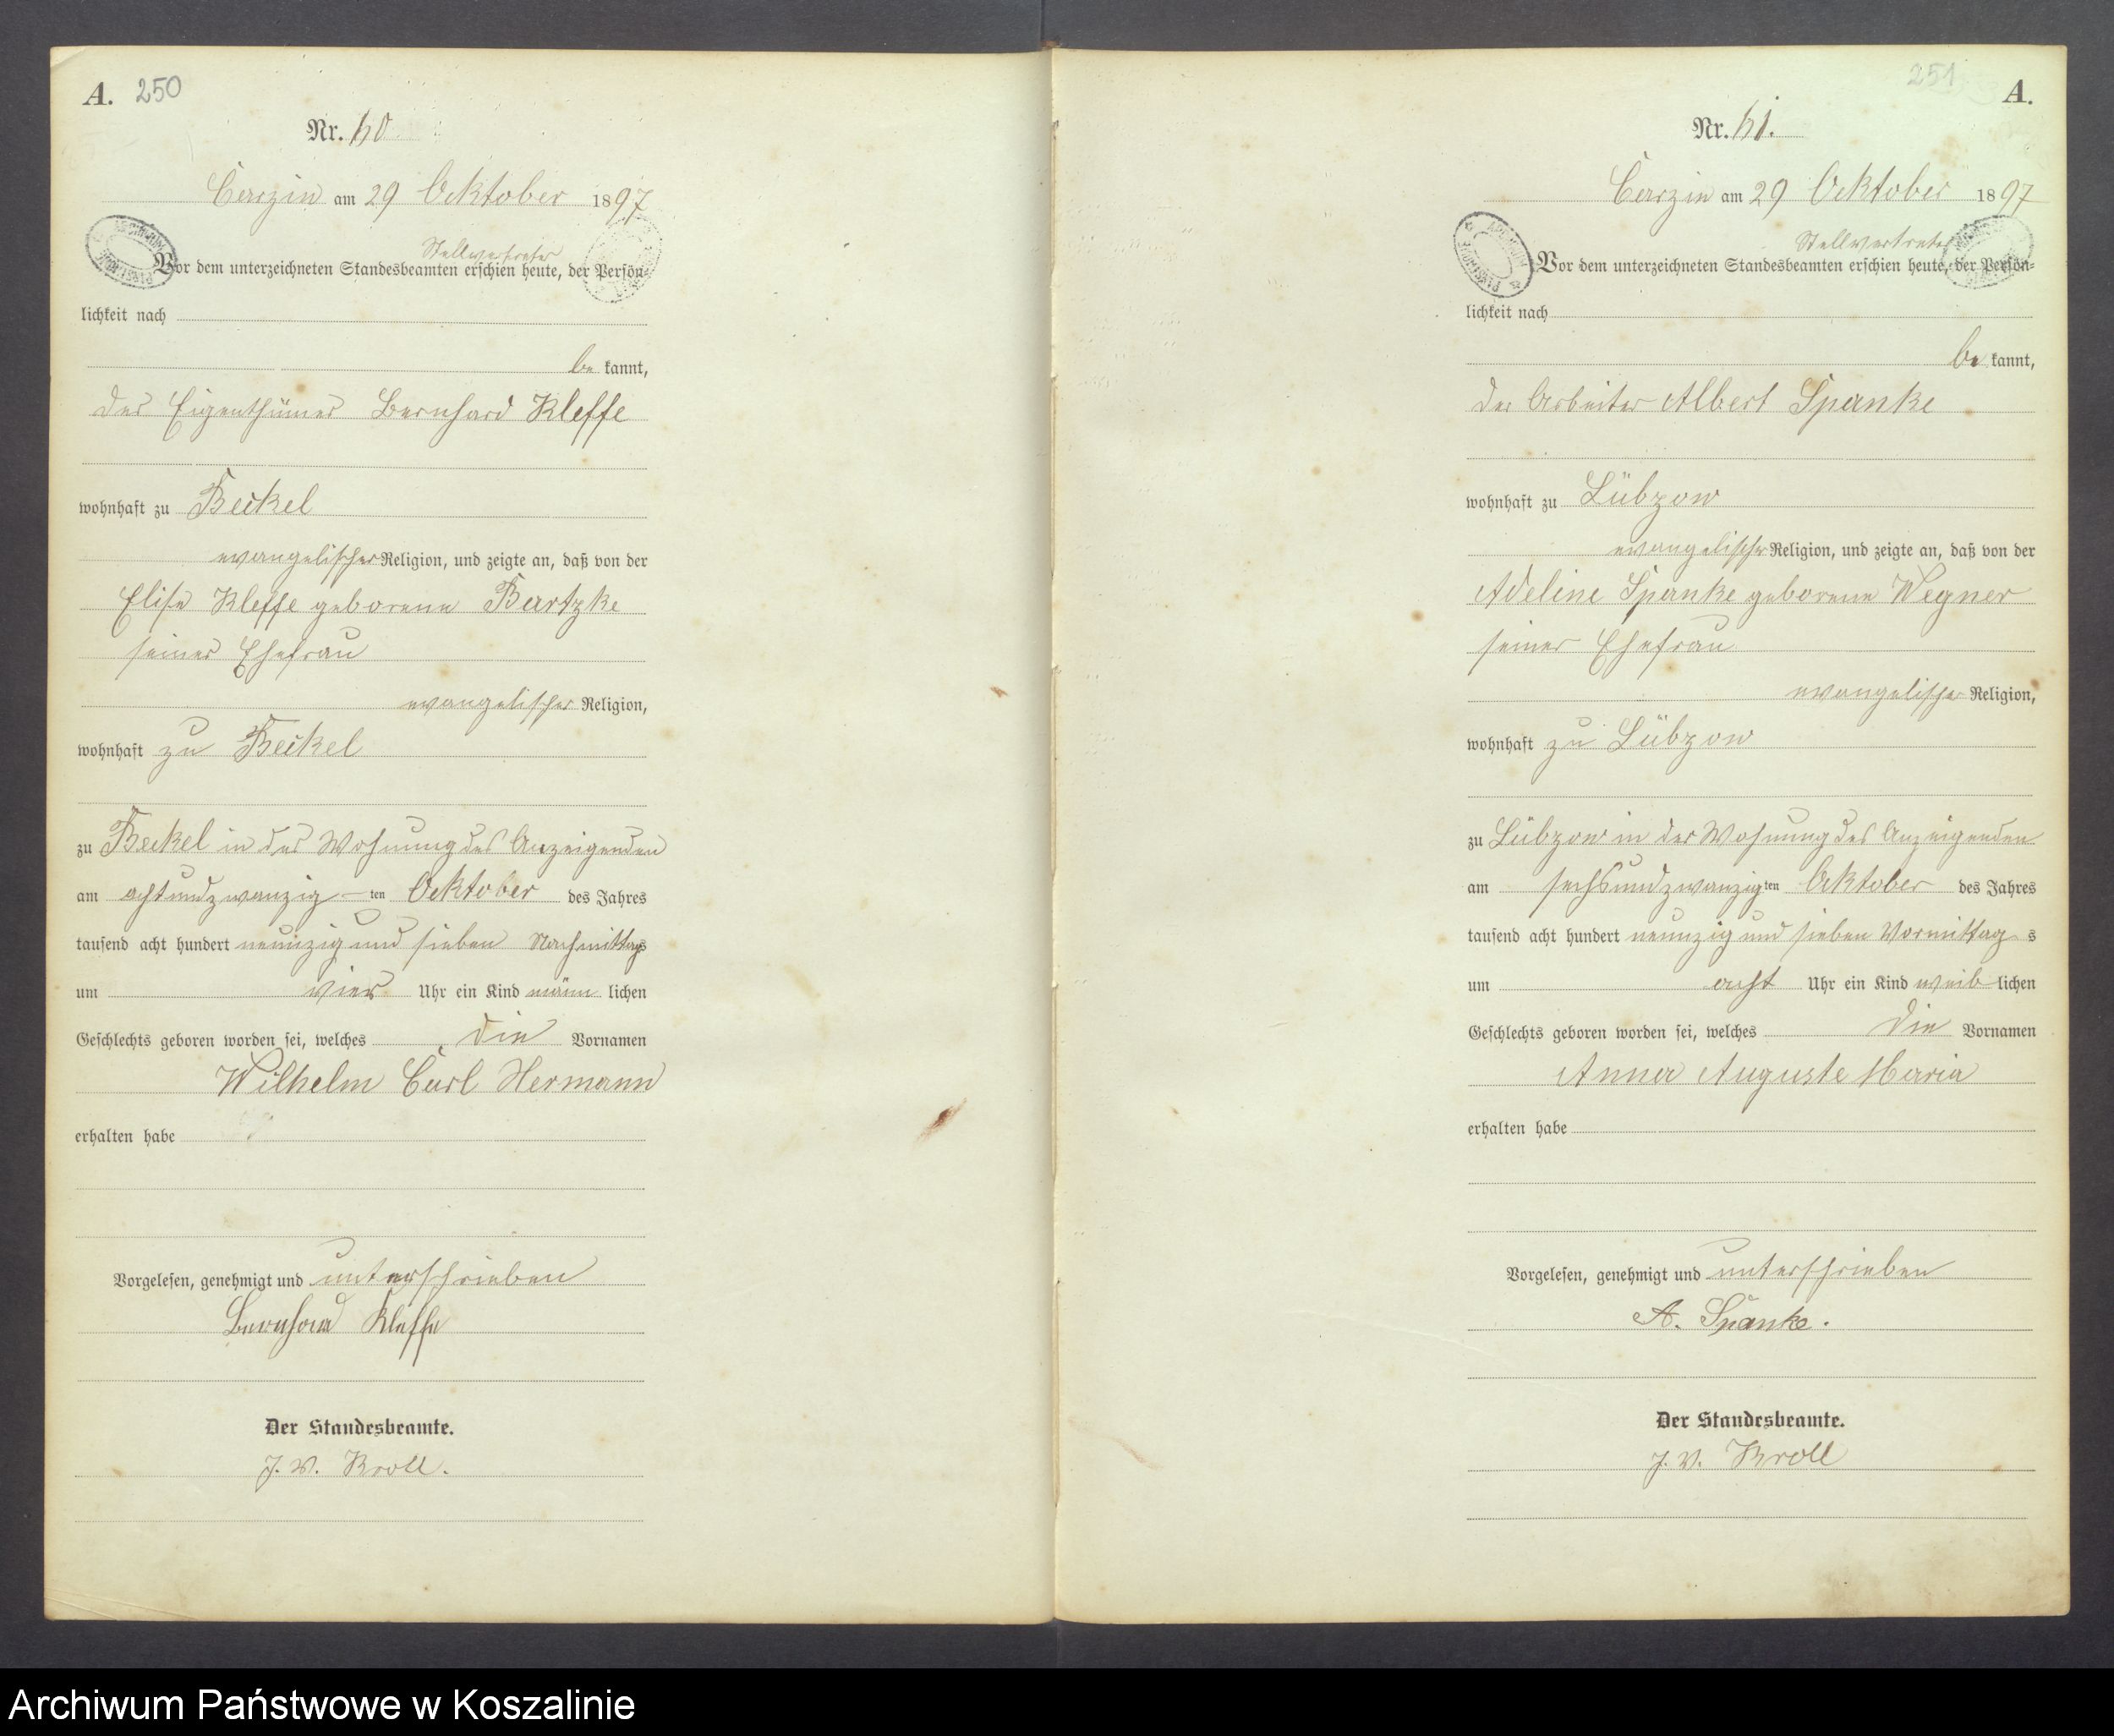 A. 250
Nr. 60
Carzin am 29 Oktober 1897
Stellvertreter
Vor dem unterzeichneten Standesbeamten erschien heute, der Persön-
lichkeit nach
be kannt,
der Eigenthümer Bernhard Kleffe
wohnhaft zu Beckel
evangelischer Religion, und zeigte an, daß von der
Elise Kleffe geborene Bartzke
seiner Ehefrau
evangelischer Religion,
wohnhaft zu Beckel
zu Beckel in der Wohnung des Anzeigenden
am achtundzwanzig ten Oktober des Jahres
tausend acht hundert neunzig und sieben Nachmittags
um vier Uhr ein Kind männ lichen
Geschlechts geboren worden sei, welches die Vornamen
Wilhelm Carl Hermann
erhalten habe
Vorgelesen, genehmigt und unterschrieben
Bernhard Kleffe
Der Standesbeamte.
J. V. Kroll.
251 A.
Nr. 61.
Carzin am 29 Oktober 1897
Stellvertreter
Vor dem unterzeichneten Standesbeamten erschien heute, der Persön-
lichkeit nach
be kannt,
der Arbeiter Albert Spanke
wohnhaft zu Lübzow
evangelischer Religion, und zeigte an, daß von der
Adeline Spanke geborene Wegner
seiner Ehefrau
evangelischer Religion,
wohnhaft zu Lübzow
zu Lübzow in der Wohnung des Anzeigenden
am sechsundzwanzig ten Oktober des Jahres
tausend acht hundert neunzig und sieben Vormittag s
um acht Uhr ein Kind weib lichen
Geschlechts geboren worden sei, welches die Vornamen
Anna Auguste Maria
erhalten habe
Vorgelesen, genehmigt und unterschrieben
A. Spanke.
Der Standesbeamte.
J. V. Kroll
Archiwum Państwowe w Koszalinie